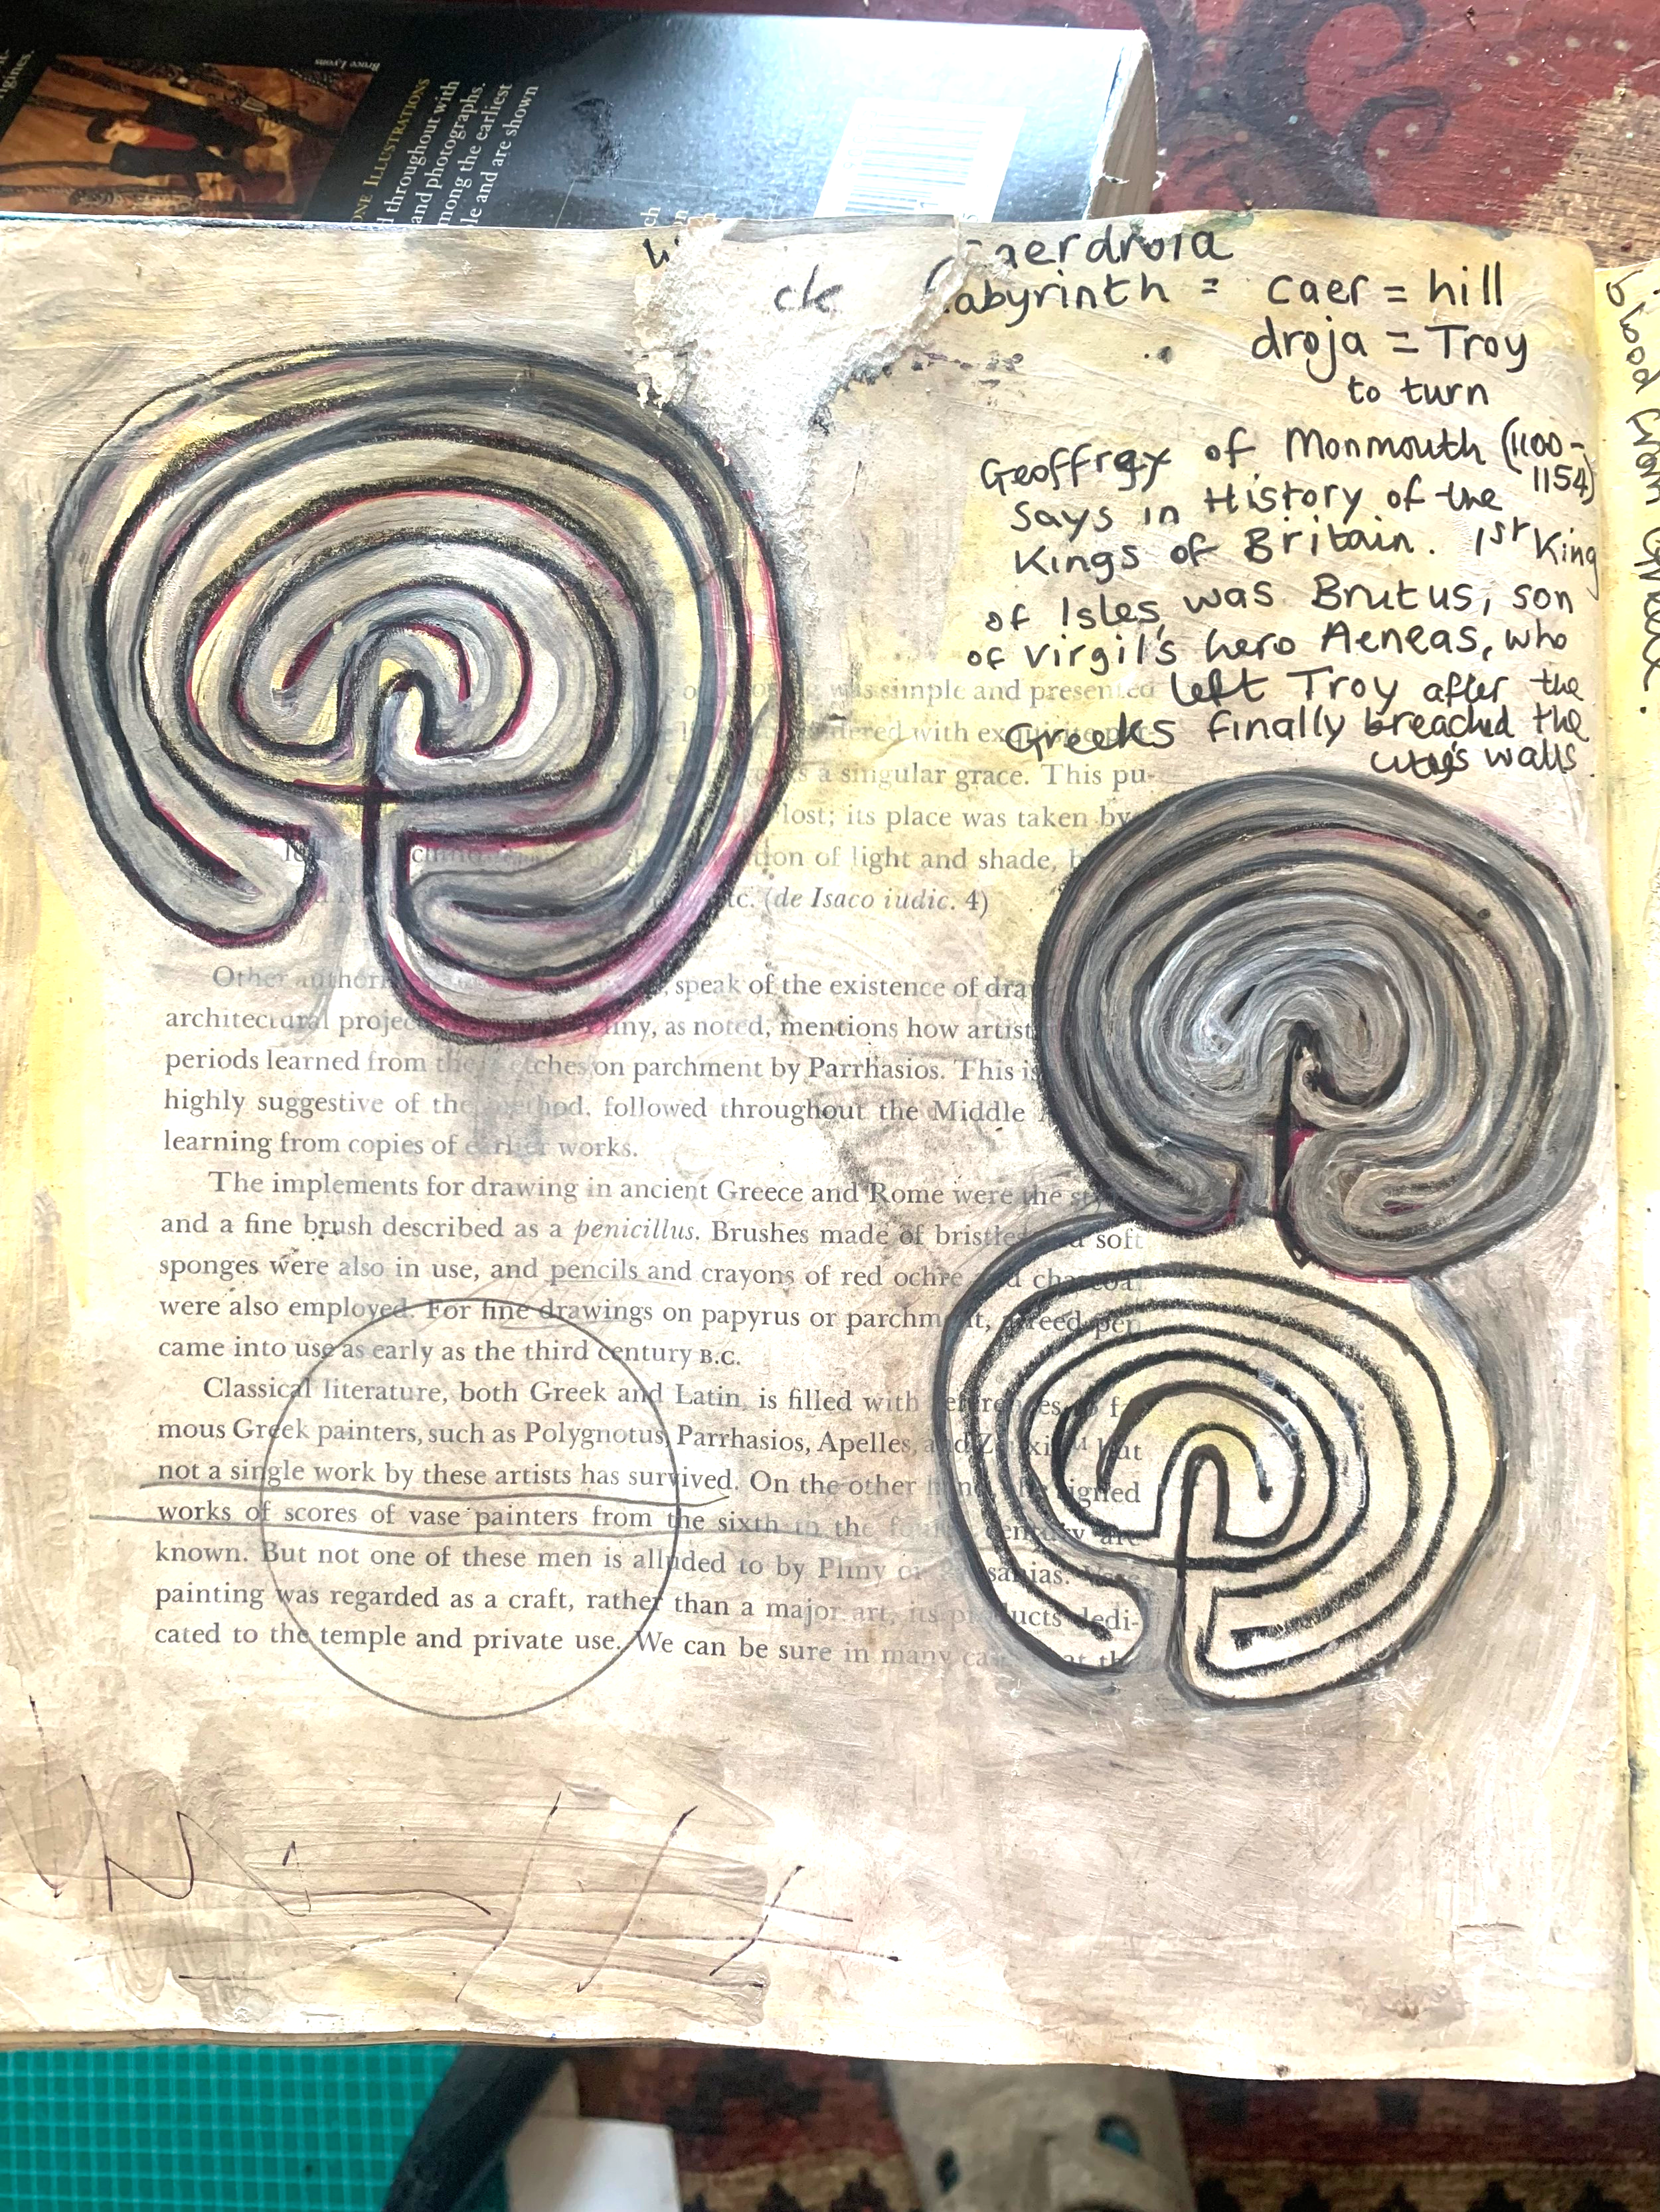 Bruce Lyons
ONE ILLUSTRATIONS
d throughout with
and photographs.
mong the earliest
le and are shown
ch
gines.
aerdroia
ck
abyrinth = caer = hill
droja = Troy
to turn
Geoffrey of Monmouth (1100-
1154)
says in History of the
Kings of Britain. 1st King
of Isles, was Brutus, son
of Virgil's hero Aeneas, who
left Troy after the
Greeks finally breached the
city's walls
blood from
was simple and presented
dered with
a singular grace. This pu-
lost; its place was taken by
ion of light and shade,
tc. (de Isaco iudic. 4)
Other speak of the existence of dra
architectural projec iny, as noted, mentions how artist
periods learned from the etches on parchment by Parrhasios. This is
highly suggestive of the method, followed throughout the Middle
learning from copies of earlier works.
The implements for drawing in ancient Greece and Rome were the
and a fine brush described as a penicillus. Brushes made of bristles soft
sponges were also in use, and pencils and crayons of red ochre charcoal
were also employed. For fine drawings on papyrus or parchment, reed pen
came into use as early as the third century B.C.
Classical literature, both Greek and Latin, is filled with references f
mous Greek painters, such as Polygnotus, Parrhasios, Apelles, and but
not a single work by these artists has survived. On the other signed
works of scores of vase painters from the sixth to the century are
known. But not one of these men is alluded to by Pliny or sanias.
painting was regarded as a craft, rather than a major art, its products dedi-
cated to the temple and private use. We can be sure in many